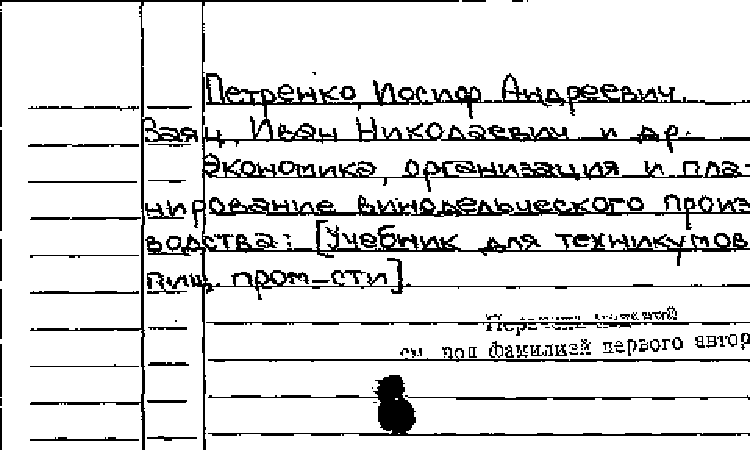 Петренко, Иосиф Андреевич.
Заяц, Иван Николаевич и др.
Экономика, организация и пла-
нирование винодельческого произ-
водства: [Учебник для техникумов
пищ. пром-сти].
см. под фамилией первого автор